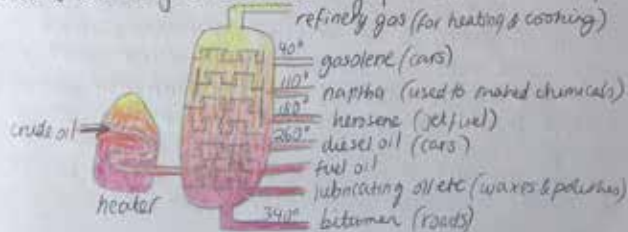 refinery gas (for heating & cooking)
40°
gasolene (cars)
110°
naptha (used to maked chemicals)
180°
kerosene (jet fuel)
260°
diesel oil (cars)
fuel oil
lubricating oil etc (waxes & polishes)
340°
bitumen (roads)
crude oil
heater